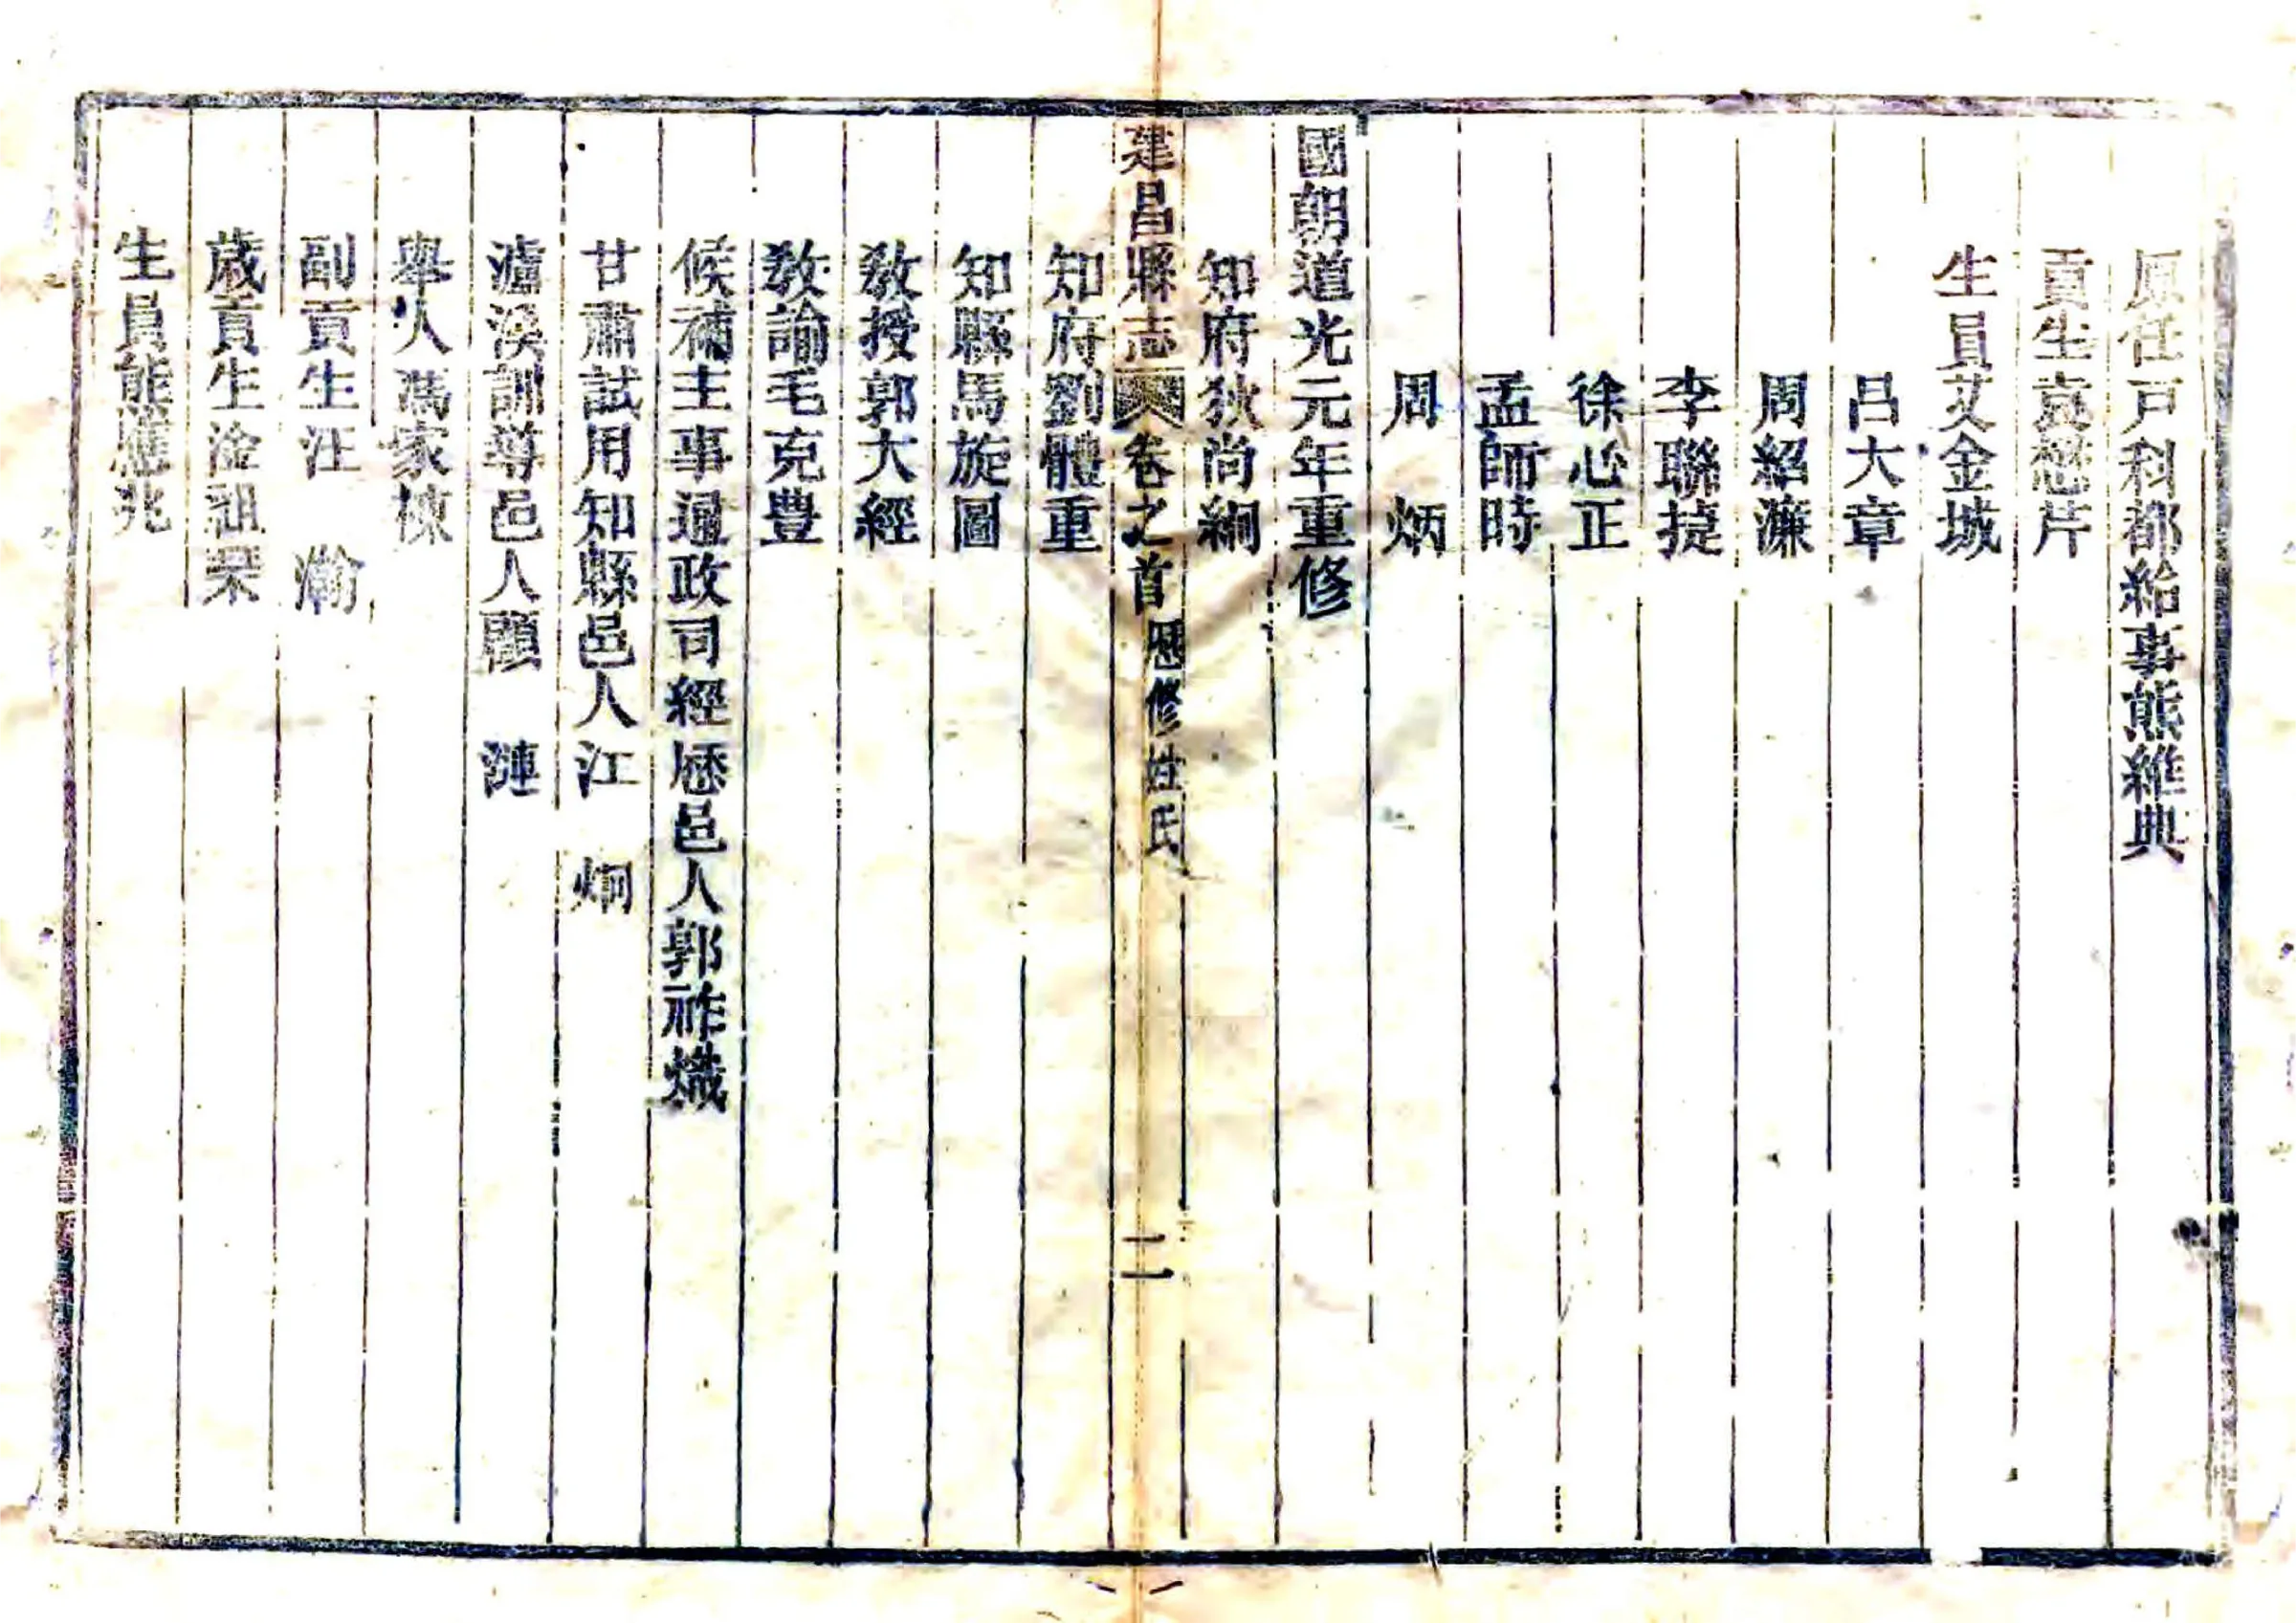 原任戸科都給事熊維典
貢生袁懋芹
生員艾金城
呂大章
周紹濂
李聯㨗
徐必正
孟師時
周炳
國朝道光元年重修
知府狄尚絅
建昌縣志 卷之首 歷修姓氏 二
知府劉體重
知縣馬旋圖
教授郭大經
教諭毛克豊
候補主事通政司經歷邑人郭祚熾
甘肅試用知縣邑人江炯
瀘溪訓導邑人顧漣
舉人馮家棟
副貢生汪瀚
歲貢生淦祖琹
生員熊應兆